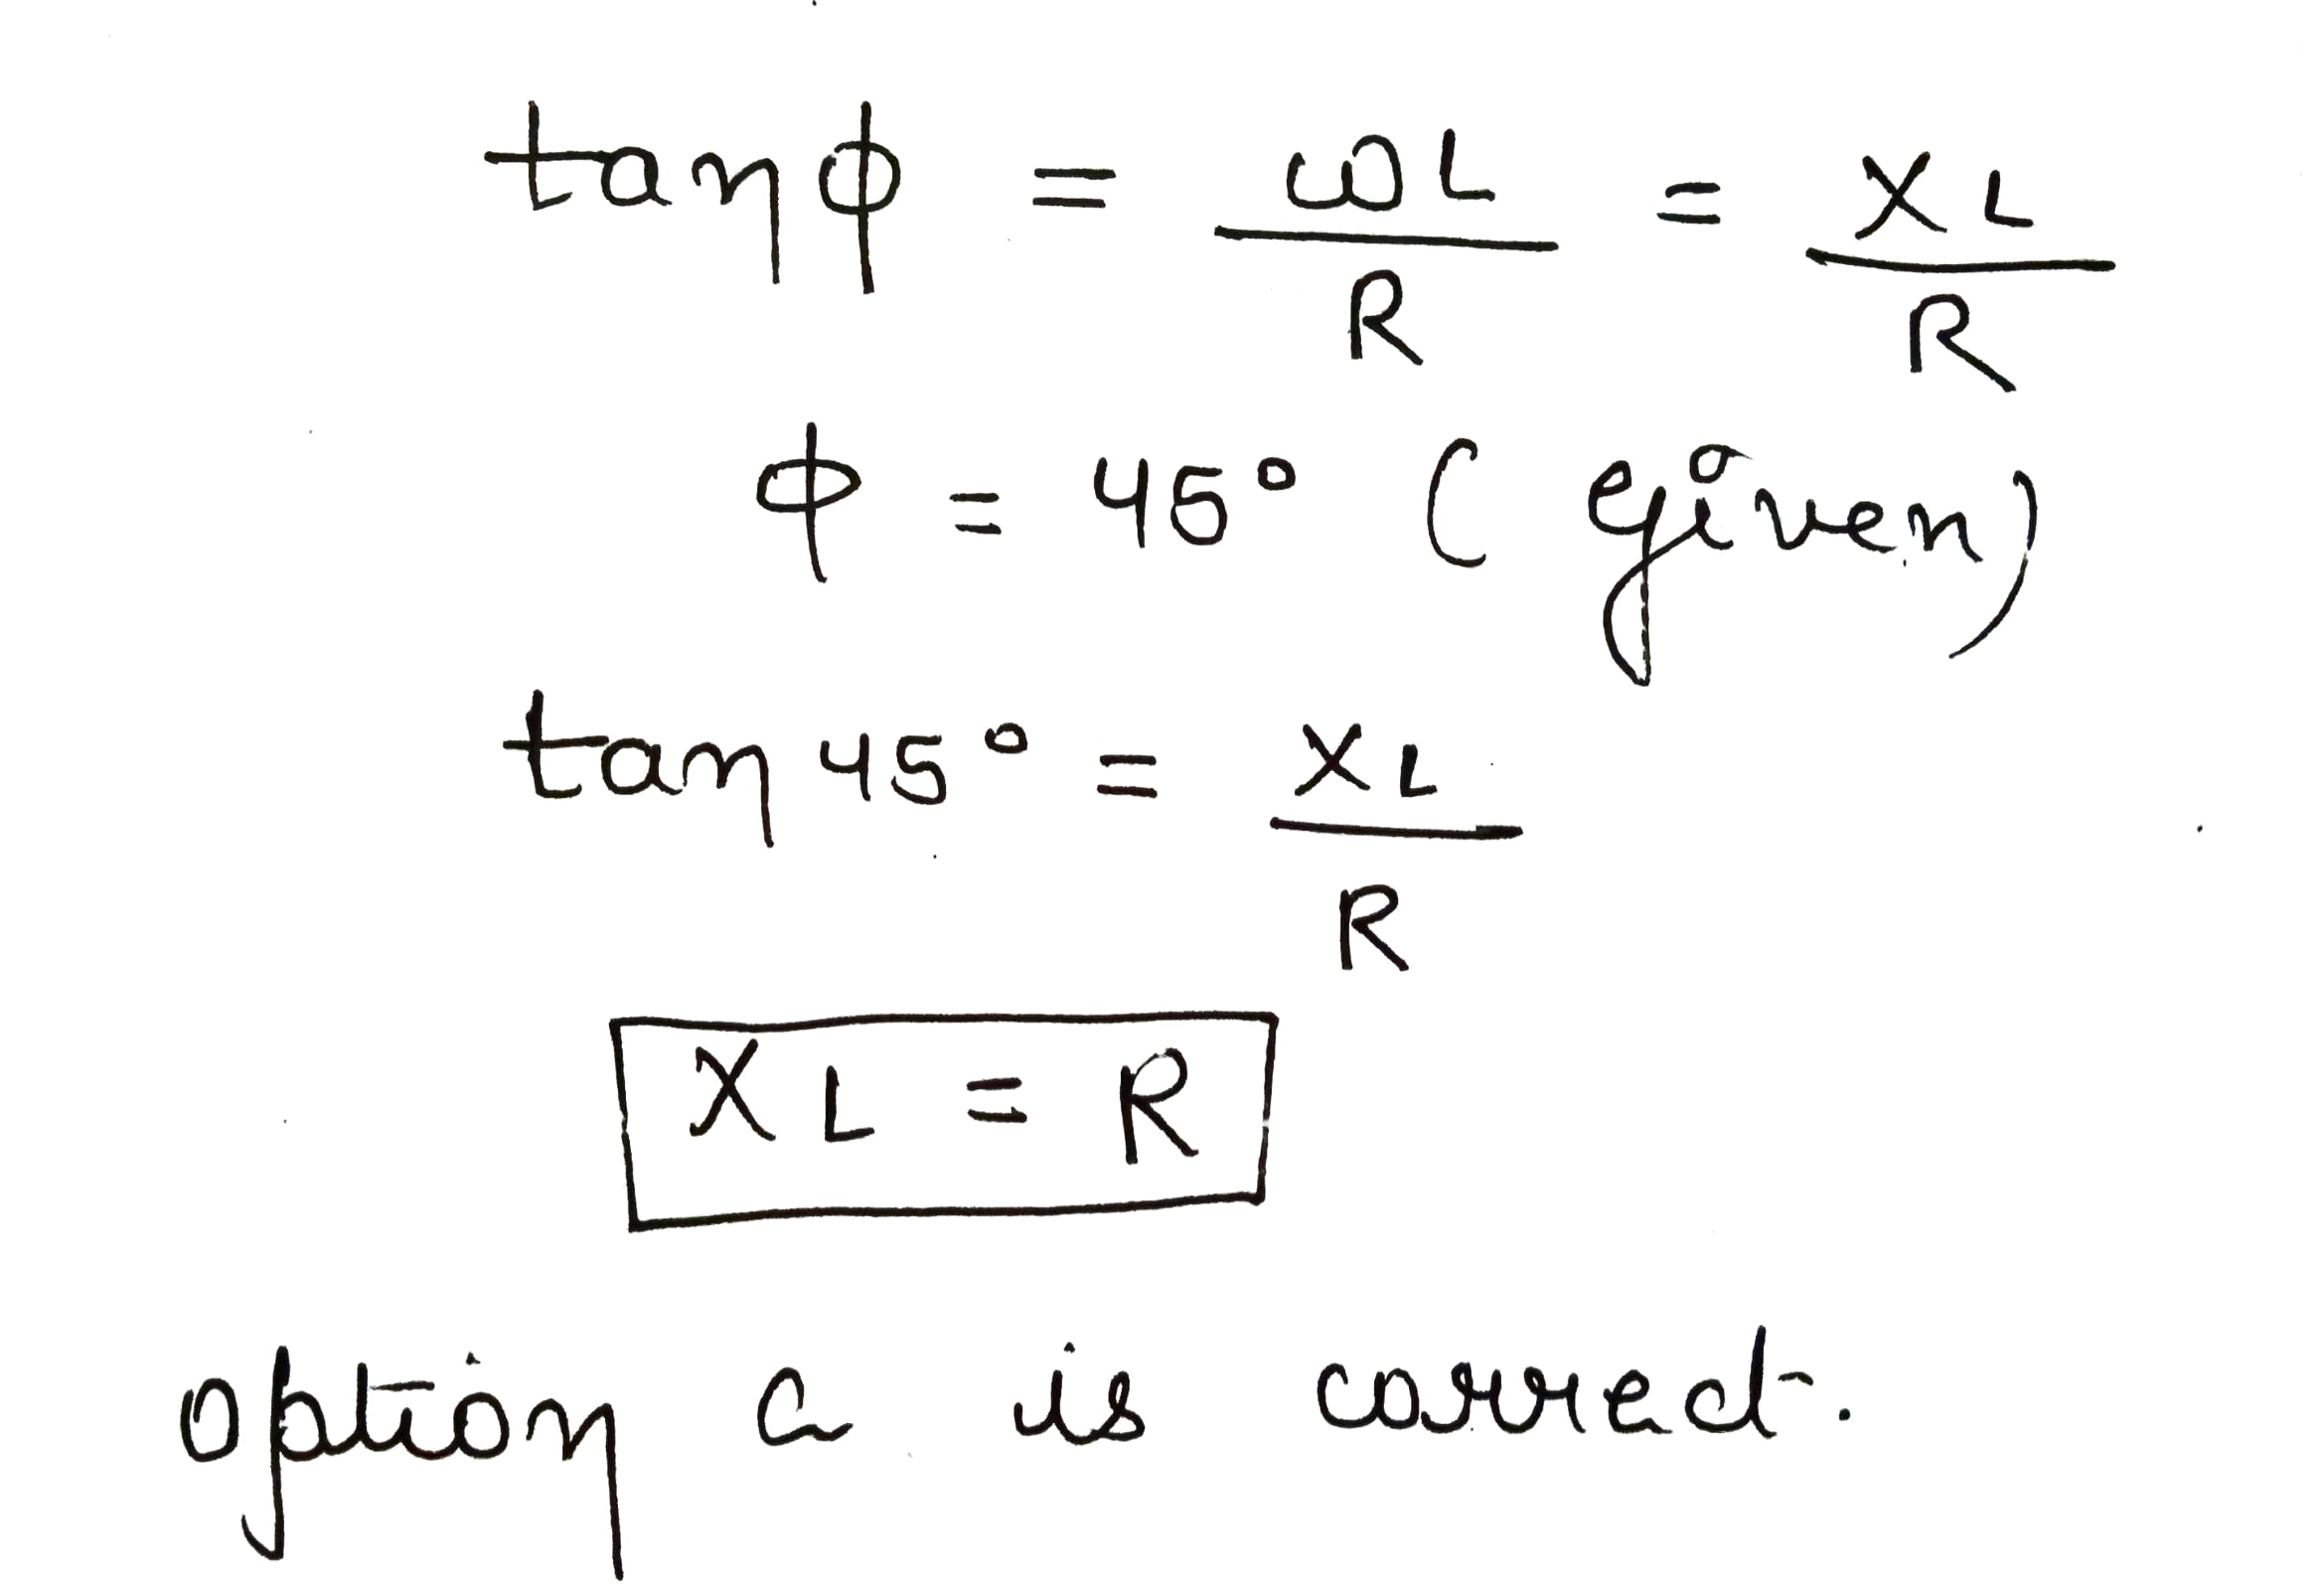 tanϕ = ωL/R = XL/R
ϕ = 45° (given)
tan 45° = XL/R
XL = R
option a is correct.